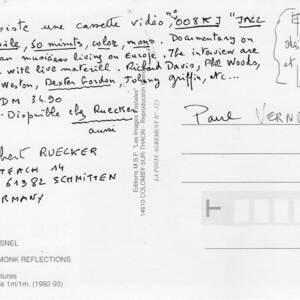 existe une cassette vidéo n° 008KJ "JAZZ
, 50 minuts, color, mono. Documentary on
an musicians living on Europe. The intwiew are
with live materiell. Richard Davis, Phil Woods,
Weston, Dexter Gordon, Johnny Griffin, etc...
DM 34.90
Disponible chez Ruecker
aussi
bert RUECKER
TFACH 14
61382 SCHMITTEN
RMANY
et
Paul VERNO
Editions M.S.P. "Les Images Postales"
14610 COLOMBY SUR THAON - Reproduction
LA POSTE AGREMENT N° 123
SNEL
MONK REFLECTIONS
ctures
e 1m/1m. (1992-93)